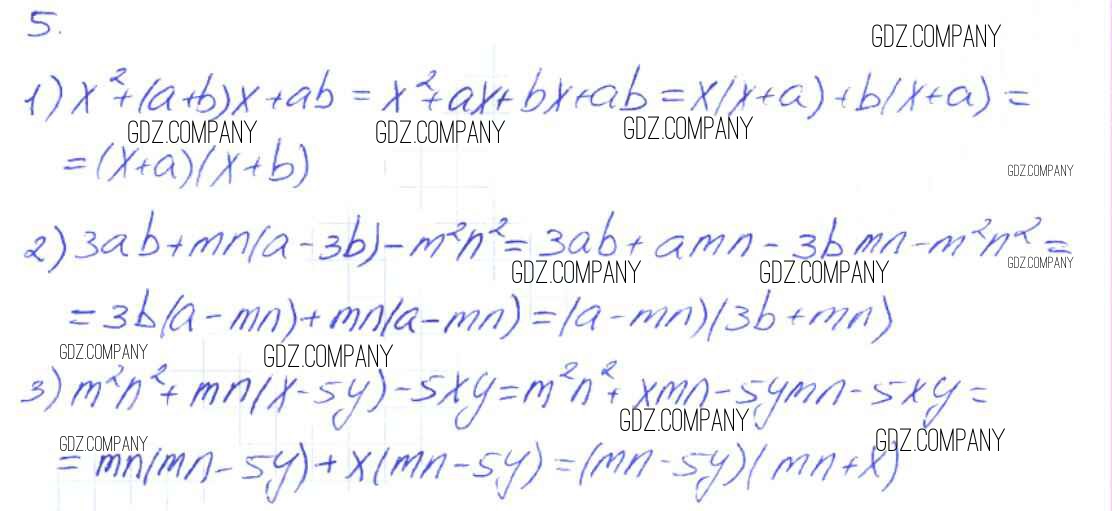 5.
GDZ.COMPANY
1) x²+(a+b)x+ab = x²+ax+bx+ab = x(x+a)+b(x+a) =
GDZ.COMPANY GDZ.COMPANY GDZ.COMPANY
= (x+a)(x+b)
GDZ.COMPANY
2) 3ab+mn(a-3b)-m²n² = 3ab+amn-3bmn-m²n² =
GDZ.COMPANY GDZ.COMPANY GDZ.COMPANY
= 3b(a-mn)+mn(a-mn) = (a-mn)(3b+mn)
GDZ.COMPANY GDZ.COMPANY
3) m²n²+mn(x-5y)-5xy = m²n²+xmn-5ymn-5xy =
GDZ.COMPANY GDZ.COMPANY GDZ.COMPANY
= mn(mn-5y)+x(mn-5y) = (mn-5y)(mn+x)